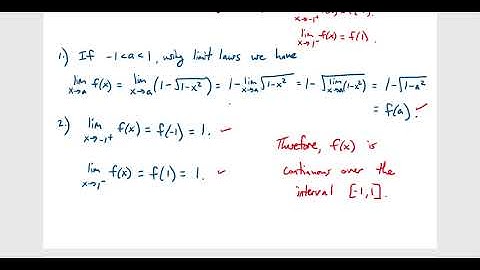 lim x→-1⁺
lim x→1⁻ f(x) = f(1).
1.) If -1<a<1, using limit laws we have
lim x→a f(x) = lim x→a (1-√(1-x²)) = 1 - lim x→a √(1-x²) = 1 - √(lim x→a (1-x²)) = 1-√(1-a²)
= f(a). ✓
2.) lim x→-1⁺ f(x) = f(-1) = 1. ✓
lim x→1⁻ f(x) = f(1) = 1. ✓
Therefore, f(x) is
continuous over the
interval [-1,1].